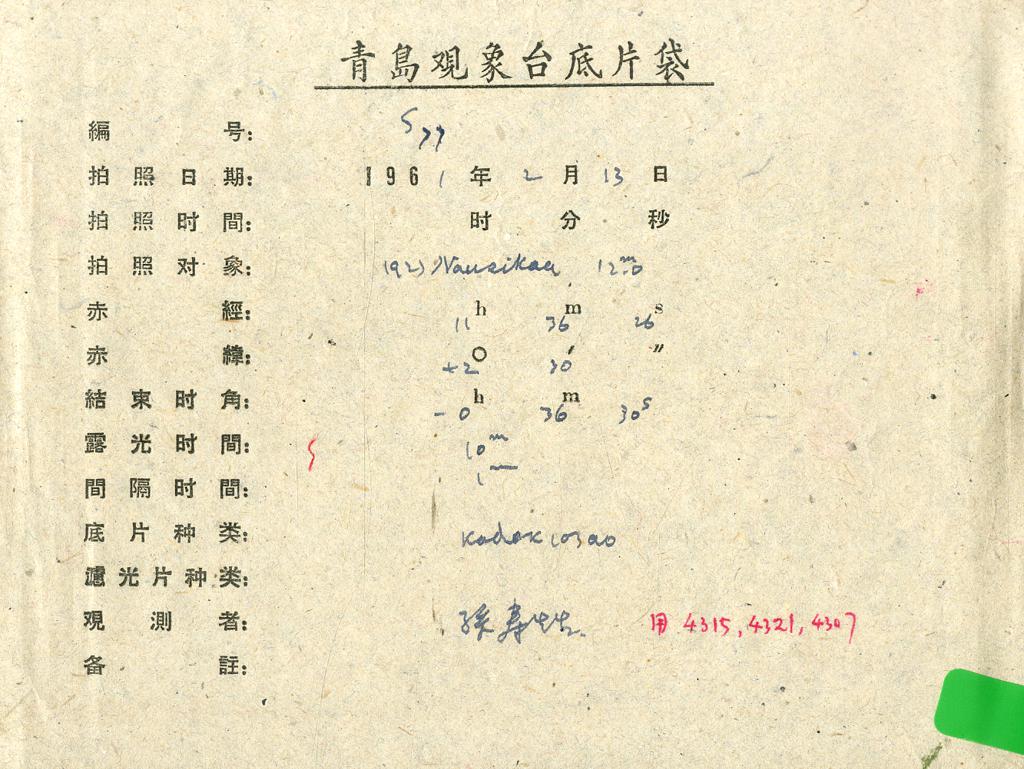 青島观象台底片袋
編 号: S77
拍照日期: 1961年2月13日
拍照时間: 时 分 秒
拍照对象: (192) Nausikaa 12m.0
赤 經: 11h 36m 26s
赤 緯: +2° 30′ ″
結束时角: -0h 36m 30s
露光时間: 10m
間隔时間: 1m
底片种类: Kodak 103aO
濾光片种类:
观測者: 孫寿 用 4315, 4321, 4307
备 註: